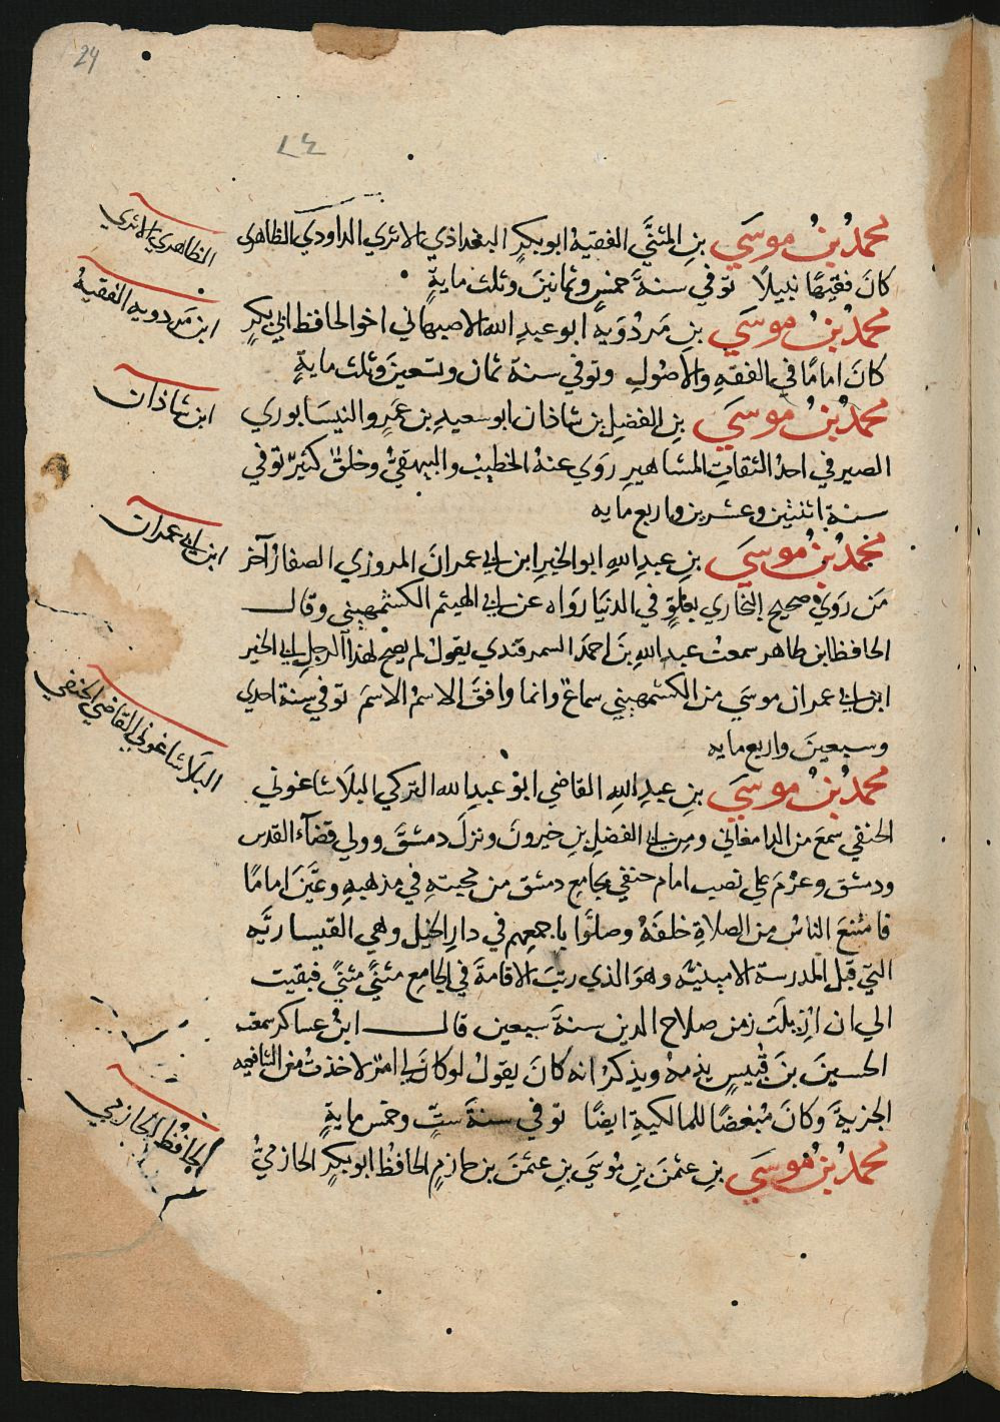 24
٢٤
محمدُ بنُ موسَي بنِ المثنَّي الفقيهُ ابو بكرٍ البغداذي الاثري الداودي الظاهري
الظاهري الاثري
كانَ فقيهًا نبيلًا توفي سنةَ خمسٍ وثمانينَ وثلث مايةٍ
محمدُ بنُ موسَي بنِ مَردُوَيهَ ابو عبدِ الله الاصبهاني اخو الحافظ ابي بكرٍ
ابن مَردويه الفقيهُ
كانَ امامًا في الفقهِ والاصُولِ وتوفي سنة ثمان وتسعينَ وثلث مايةٍ
محمدُ بنُ موسَي بنِ الفضلِ بن شاذان ابو سعيدِ بن عَمرٍو النيسَابوري
ابن شاذان
الصيرفي احدُ الثقاتِ المشاهيرِ روَي عنهُ الخطيبُ والبيهقيُّ وخلقٌ كثيرٌ توفي
سنة اثنتين وعشرين واربع مايه
محمدُ بنُ موسَي بنِ عبدِ اللهِ ابو الخيرِ ابن ابي عمرانَ المروزي الصفارُ آخر
ابن ابي عمران
مَن روَي صحيح البخاري بعلوٍّ في الدنيَا روَاه عن ابي الهيثم الكشميهيني وقال
الحافظ ابن طاهر سمعتُ عبد اللهِ بنَ احمدَ السمرقندي يقولُ لم يصح لهذا الرجلِ ابي الخير
ابن ابي عمران موسَي من الكشميهيني سماعٌ وانما وافقَ الاسمُ الاسمَ توفي سنة احدي
وسبعينَ واربع مايه
محمدُ بنُ موسَي بنِ عبدِ اللهِ القاضي ابوُ عبدِ الله التركي البلَاشاغوني
البلَاشاغوني القاضي الحنفي
الحنفي سمعَ من الدامغاني ومن ابي الفضلِ بنِ خيرونَ ونزلَ دمشقَ وولي قضآءَ القدس
ودمشق وعزمَ علي نصب امام حنفي بجامعِ دمشق من محبتهِ في مذهبهِ وعيَّنَ امامًا
فامتنعَ الناسُ من الصلاةِ خلفَهُ وصلَّوا باجمعهم في دارِ الخيل وهي القيساريَّه
التي قبل المدرسة الامينيَّه وهوَ الذي رتبَ الاقامةَ في الجامعِ مثنَي مثنَي فبقيت
الي ان ازيلَت زمن صلاح الدين سنةَ سبعين قال ابنُ عساكر سمعت
الحسينَ بنَ قُبيسٍ يذمهُ ويذكرُ انه كانَ يقولُ لو كانَ لي امرٌ لاخذتُ من الشافعيه
الجزيةَ وكانَ مُبغضًا للمالكيةِ ايضًا توفي سنةَ ستٍّ وخمس مايةٍ
محمدُ بنُ موسَي بنِ عثمنَ بنِ موُسَي بنِ عثمنَ بن حازمٍ الحافظُ ابو بكرٍ الحازميُّ
الحافظ الحازمي